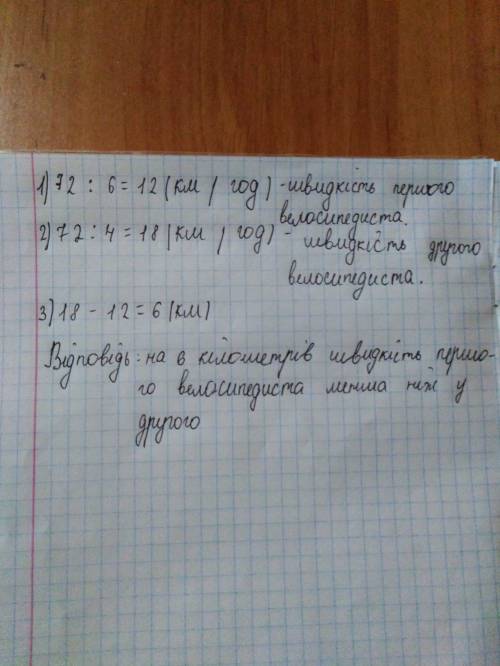 1) 72 : 6 = 12 (км / год) - швидкість першого
велосипедиста.
2) 72 : 4 = 18 (км / год) - швидкість другого
велосипедиста.
3) 18 - 12 = 6 (км)
Відповідь: на 6 кілометрів швидкість першо-
го велосипедиста менша ніж у
другого